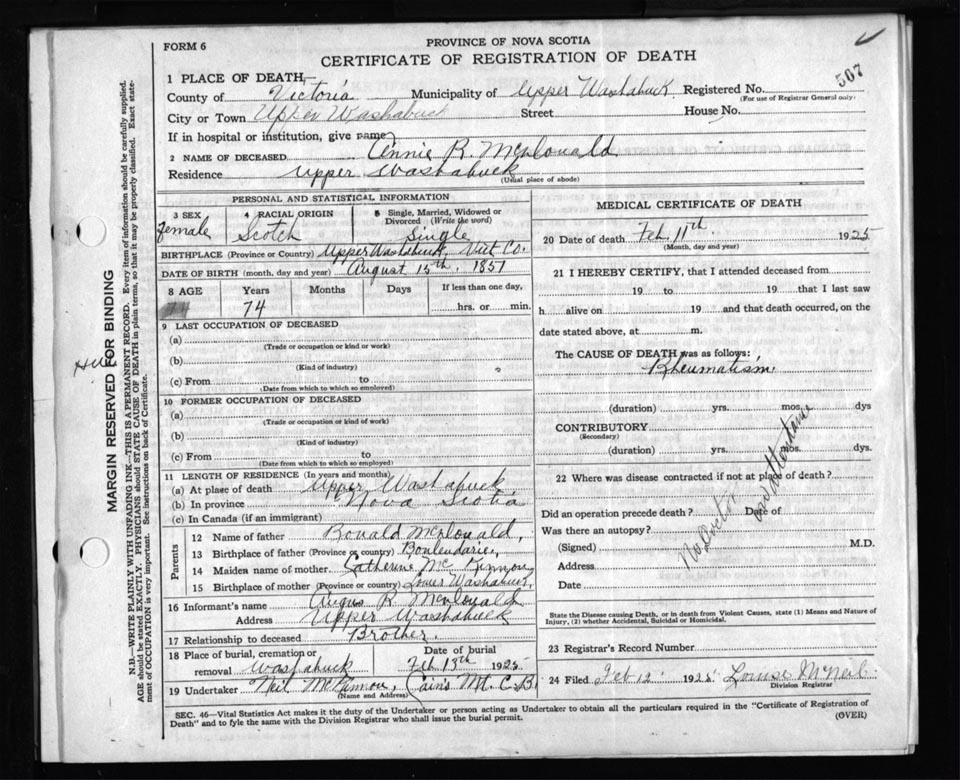 FORM 6
PROVINCE OF NOVA SCOTIA
CERTIFICATE OF REGISTRATION OF DEATH
507
1 PLACE OF DEATH—
County of Victoria Municipality of Upper Washabuck Registered No.
(For use of Registrar General only)
City or Town Upper Washabuck Street House No.
If in hospital or institution, give name
2 NAME OF DECEASED Annie R. McDonald
Residence Upper Washabuck
(Usual place of abode)
PERSONAL AND STATISTICAL INFORMATION
3 SEX 4 RACIAL ORIGIN 5 Single, Married, Widowed or Divorced (Write the word)
Female Scotch Single
BIRTHPLACE (Province or Country) Upper Washabuck, Vict Co.
DATE OF BIRTH (month, day and year) August 15th, 1851
8 AGE Years Months Days If less than one day,
74 hrs. or min.
9 LAST OCCUPATION OF DECEASED
(a)
(Trade or occupation or kind or work)
(b)
(Kind of industry)
(c) From to
(Date from which to which so employed)
10 FORMER OCCUPATION OF DECEASED
(a)
(Trade or occupation or kind of work)
(b)
(Kind of industry)
(c) From to
(Date from which to which so employed)
11 LENGTH OF RESIDENCE (In years and months)
(a) At place of death Upper Washabuck
(b) In province Nova Scotia
(c) In Canada (if an immigrant)
Parents
12 Name of father Ronald McDonald,
13 Birthplace of father (Province or country) Boulardarie,
14 Maiden name of mother Catherine McKinnon
15 Birthplace of mother (Province or country) Lower Washabuck,
16 Informant's name Angus R. McDonald
Address Upper Washabuck
17 Relationship to deceased Brother.
18 Place of burial, cremation or removal Washabuck Date of burial Feb 13th 1925
19 Undertaker Neil McKinnon, Cain's Mt. C.B.
(Name and Address)
MEDICAL CERTIFICATE OF DEATH
20 Date of death Feb 11th 1925
(Month, day and year)
21 I HEREBY CERTIFY, that I attended deceased from
19 to 19 that I last saw
h alive on 19 and that death occurred, on the
date stated above, at m.
The CAUSE OF DEATH was as follows:
Rheumatism
(duration) yrs. mos. dys
CONTRIBUTORY
(Secondary)
(duration) yrs. mos. dys.
22 Where was disease contracted if not at place of death?
Did an operation precede death? Date of
Was there an autopsy?
(Signed) M.D.
Address
Date
No Doctor in attendance
State the Disease causing Death, or in death from Violent Causes, state (1) Means and Nature of
Injury, (2) whether Accidental, Suicidal or Homicidal.
23 Registrar's Record Number
24 Filed Feb 12 1925 Louise McNeil
Division Registrar
SEC. 46—Vital Statistics Act makes it the duty of the Undertaker or person acting as Undertaker to obtain all the particulars required in the "Certificate of Registration of
Death" and to fyle the same with the Division Registrar who shall issue the burial permit.
(OVER)
MARGIN RESERVED FOR BINDING
N.B.—WRITE PLAINLY WITH UNFADING INK—THIS IS A PERMANENT RECORD. Every item of information should be carefully supplied.
AGE should be stated EXACTLY. PHYSICIANS should STATE CAUSE OF DEATH in plain terms, so that it may be properly classified. Exact state-
ment of OCCUPATION is very important. See instructions on back of Certificate.